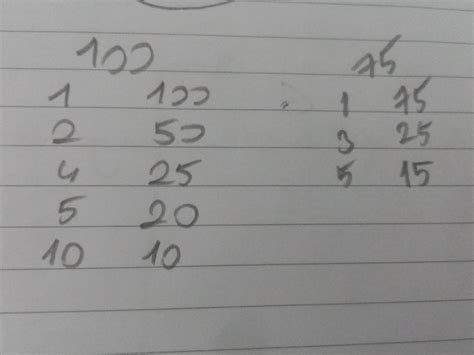 100 75
1 100 1 75
2 50 3 25
4 25 5 15
5 20
10 10